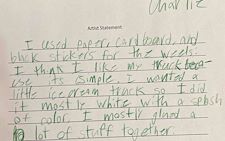 Charlie
Artist Statement
I used paper, cardboard, and
black stickers for the weels.
I think I like my truck beca-
use its simple. I wanted a
little ice cream truck so I did
it mostly white with a splash
of color. I mostly glued a
lot of stuff together.